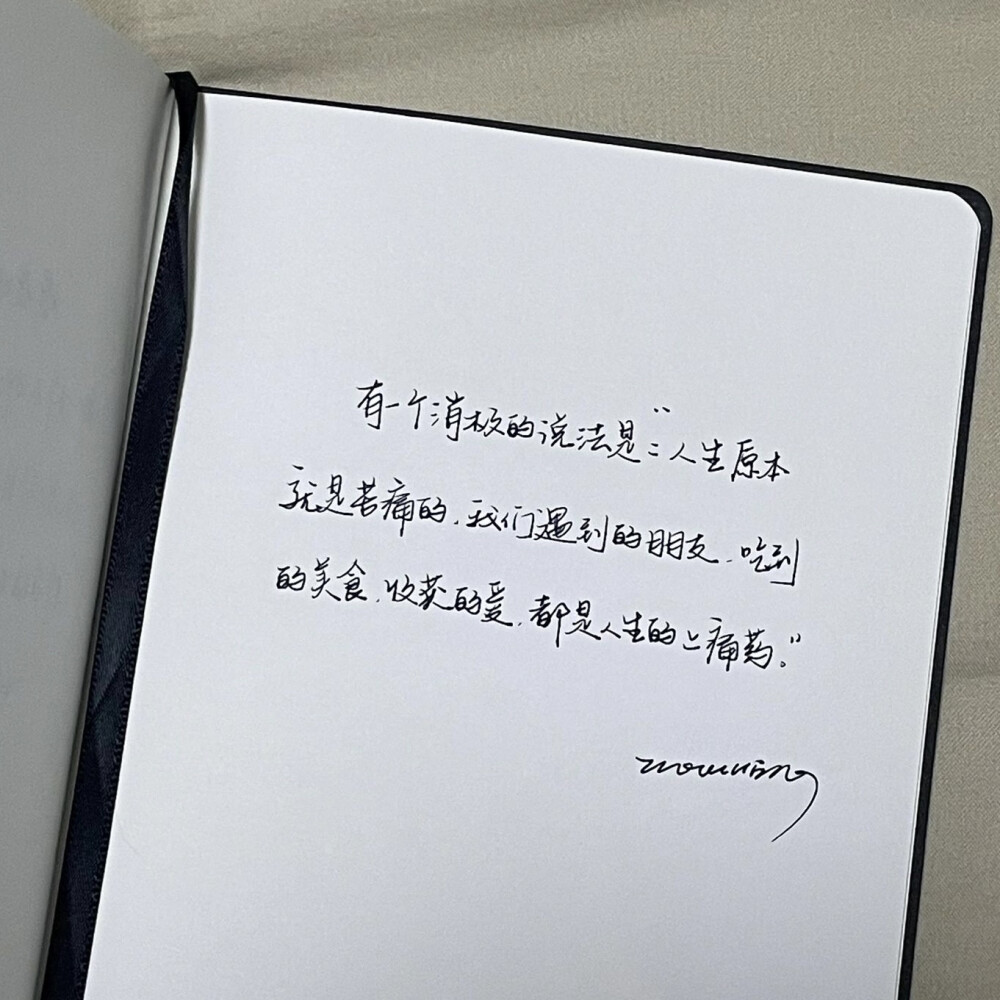 有一个消极的说法是：“人生原本
就是苦痛的，我们遇到的朋友，吃到
的美食，收获的爱，都是人生的止痛药。”